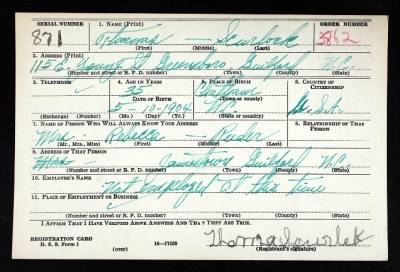 SERIAL NUMBER 1. NAME (Print) ORDER NUMBER
871 Thomas — Scurlock 3862
(First) (Middle) (Last)
2. ADDRESS (Print)
1156 St Greensboro Guilford N.C.
(Number and street or R. F. D. number) (Town) (County) (State)
3. TELEPHONE 4. AGE IN YEARS 5. PLACE OF BIRTH 6. COUNTRY OF CITIZENSHIP
35 Chatham
DATE OF BIRTH (Town or county)
5-10-1904 N.C.
(Exchange) (Number) (Mo.) (Day) (Yr.) (State or country)
7. NAME OF PERSON WHO WILL ALWAYS KNOW YOUR ADDRESS 8. RELATIONSHIP OF THAT PERSON
Mrs Rebecca —
(Mr., Mrs., Miss) (First) (Middle) (Last)
9. ADDRESS OF THAT PERSON
Jamestown Guilford N.C.
(Number and street or R. F. D. number) (Town) (County) (State)
10. EMPLOYER'S NAME
Not Employed at this time
11. PLACE OF EMPLOYMENT OR BUSINESS
(Number and street or R. F. D. number) (Town) (County) (State)
I AFFIRM THAT I HAVE VERIFIED ABOVE ANSWERS AND THAT THEY ARE TRUE.
REGISTRATION CARD
D. S. S. Form 1 (over) 16—17105 (Registrant's signature)